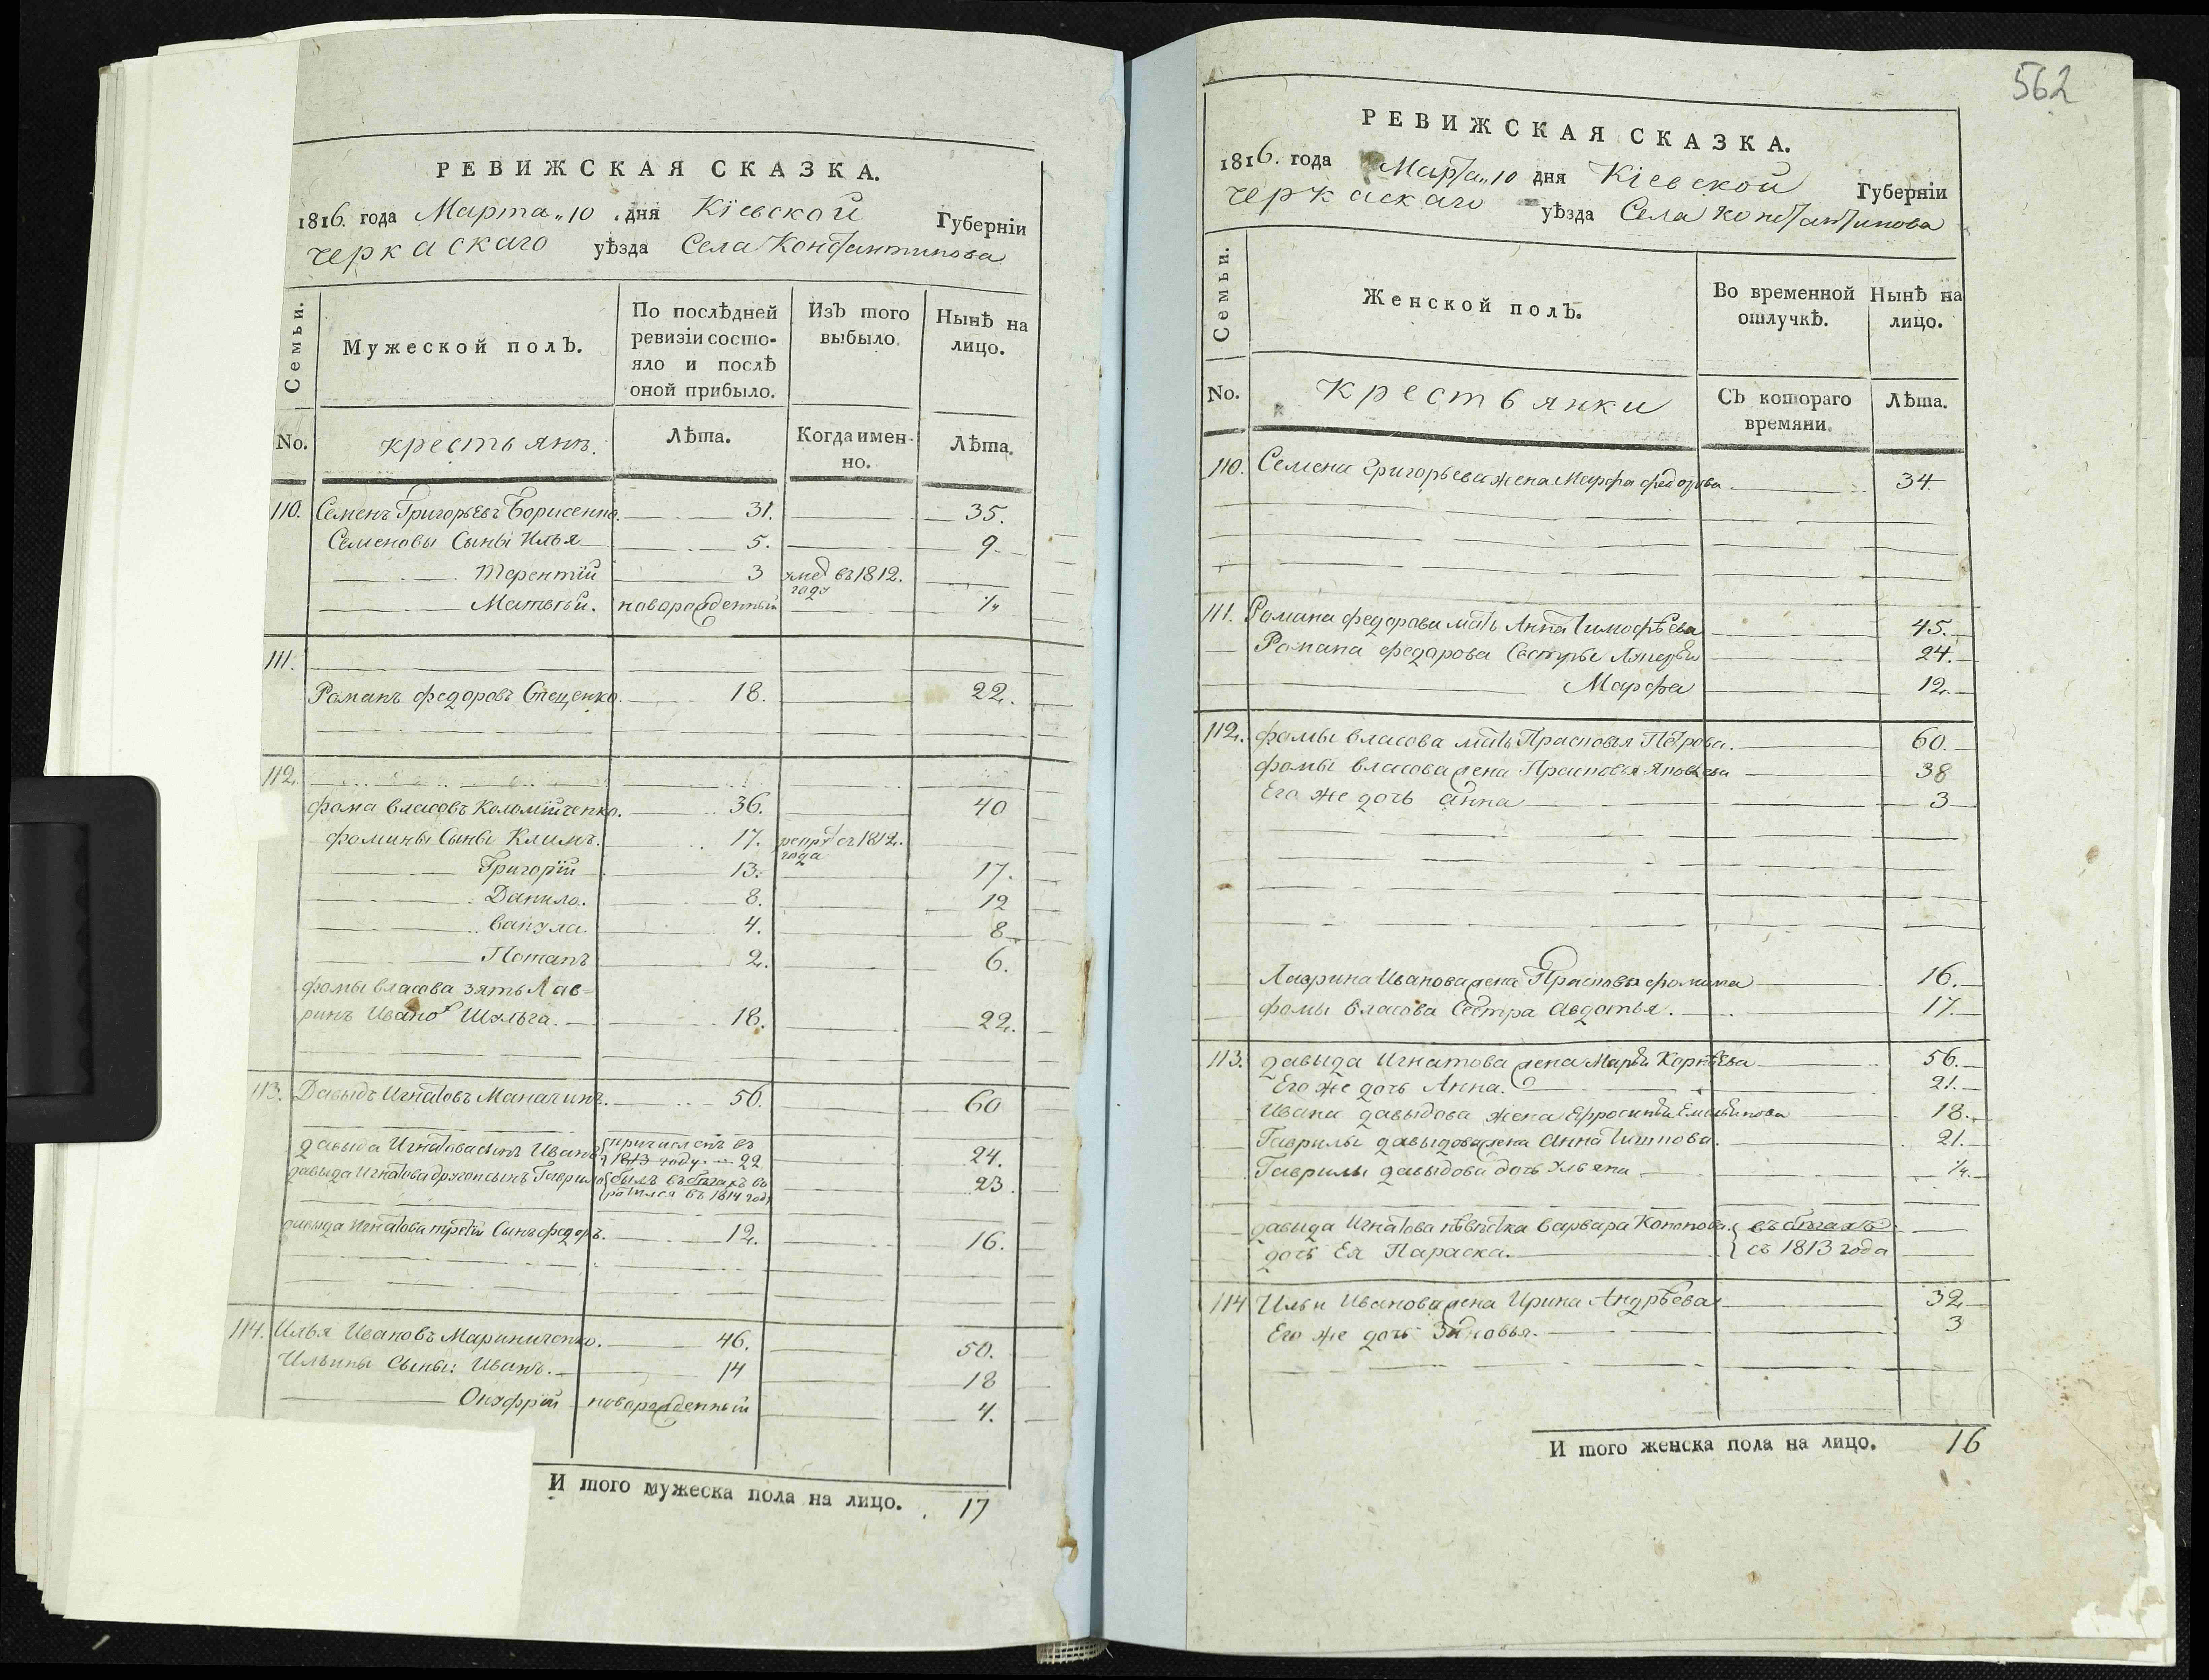 РЕВИЖСКАЯ СКАЗКА.
1816. года Марта „ 10 дня Кіевской Губерніи
Черкаскаго уѣзда Села Константинова
Семьи.
Мужеской полЪ.
По послѣдней ревизіи состояло и послѣ оной прибыло.
ИзЪ того выбыло.
Нынѣ на лицо.
No.
крестьянъ.
Лѣта.
Когда именно.
Лѣта.
110. Семенъ Григорьевъ Борисенко. 31. 35.
Семеновы Сыны Илья 5. 9.
Терентiй 3 умер въ 1812. году
Матвѣй. новорожденный
111.
Романъ федоровъ Стеценко. 18. 22.
112.
фома власовъ Коломiйченко. 36. 40
фомины Сыны Климъ. 17. рекрут съ 1812. года
Григорiй 13. 17.
Данило. 8. 12
вакула. 4. 8
Потапъ 2. 6.
фомы власова зять Лав-
ринъ Иванов Шульга. 18. 22.
113. Давыдъ Игнатовъ 56. 60
давыда Игнатова сынъ Иванъ причисленъ въ 1813 году 22 24.
давыда Игнатова другои сынъ Гаврило былъ въ бѣгахъ во
ротился въ 1814 году 23.
давыда Игнатова третiй Сынъ федоръ. 12. 16.
114. Илья Ивановъ Мариниченко. 46. 50.
Ильины Сыны: Иванъ. 14 18
Онуфрiй новорожденный 4.
И того мужеска пола на лицо. 17
562
РЕВИЖСКАЯ СКАЗКА.
1816. года Марта „ 10 дня Кіевской Губерніи
Черкаскаго уѣзда Села Константинова
Семьи.
Женской полЪ.
Во временной отлучкѣ.
Нынѣ на лицо.
No.
крестьянки
СЪ котораго времяни.
Лѣта.
110. Семена Григорьева жена Марфа федорова 34
111. Романа федорова мать Анна Тимофѣева 45.
Романа федорова Сестры 24.
Марфа 12.
112. фомы власова мать Прасковья Петрова. 60.
фомы власова жена Прасковья Яковлева 38
Его же дочь анна 3
Лаврина Иванова жена Прасковья фомина 16.
фомы власова Сестра Авдотья. 17.
113. давыда Игнатова жена Марья Корнѣева 56.
Его же дочь Анна. 21.
Ивана давыдова жена Ефросинья Емельянова 18.
Гаврилы давыдова жена анна 21.
Гаврилы давыдова дочь Ульяна
давыда Игнатова невѣстка варвара Кононова. въ бѣгахъ
дочь Ея Параска. съ 1813 года
114 Ильи Иванова жена Ирина Андрѣева 32
Его же дочь Зиновья. 3
И того женска пола на лицо. 16